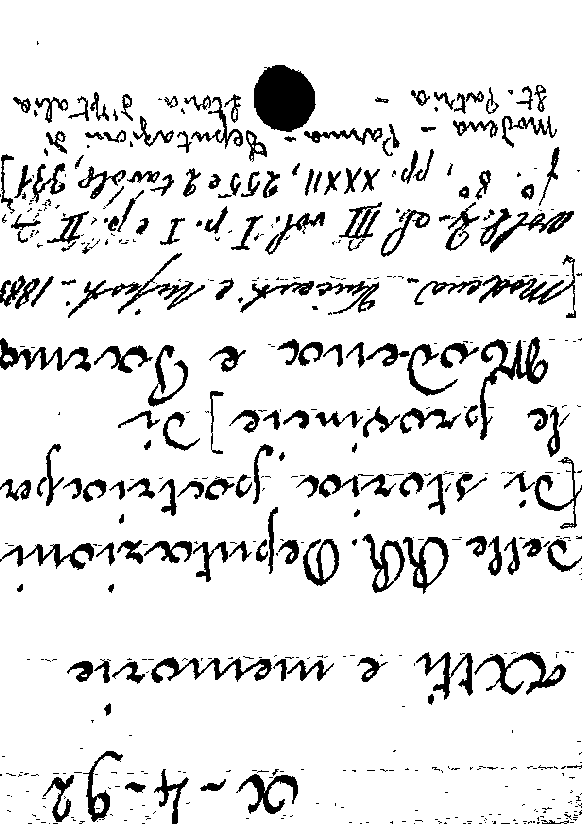 α-4-92
Atti e memorie
delle RR. Deputazioni
[di storia patria per
le provincie] di
Modena e Parma
[Modena - Vincenzi e Nipoti - 188
voll. 2 - ob. III vol. I p. I e p. II
f.° 8°, pp. XXXII, 255 e 2 tavole, 331]
Modena - Parma - Deputazioni di
St. Patria - Storia d'Italia